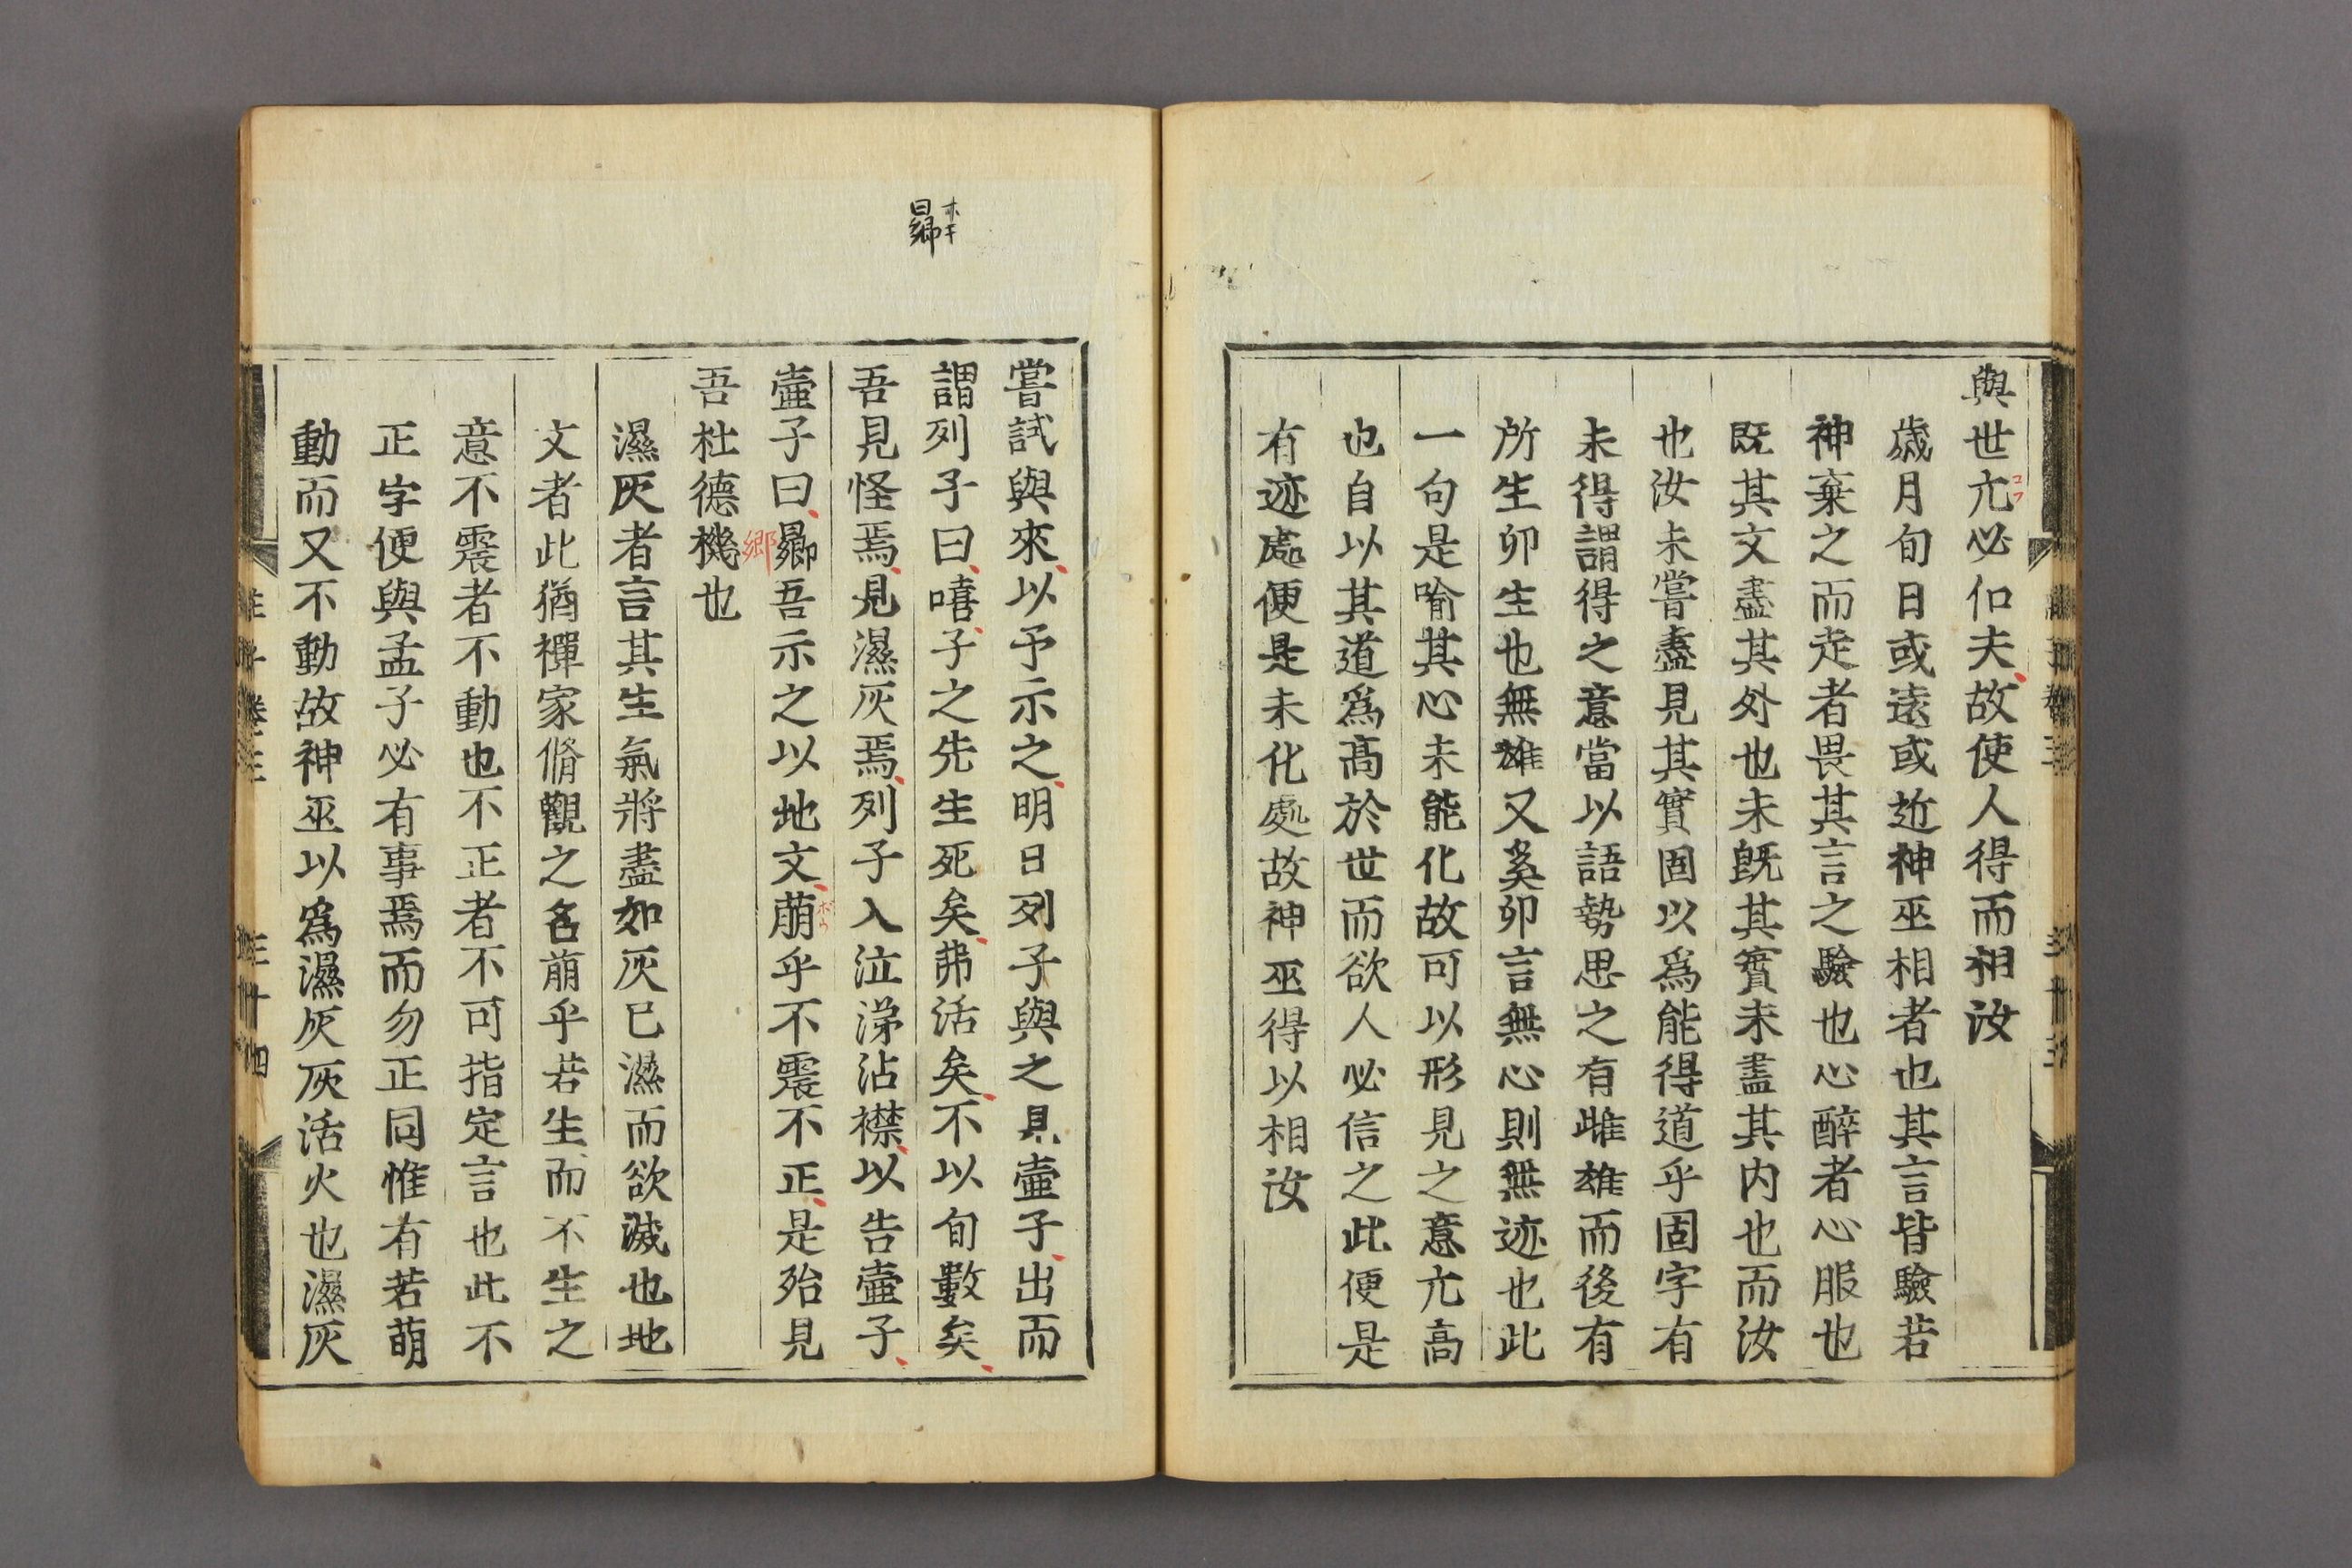 與世亢必仁夫故使人得而相汝
コフ
歲月旬日或遠或近神巫相者也其言皆驗若
神棄之而走者畏其言之驗也心醉者心服也
既其文盡其外也未既其實未盡其内也而汝
也汝未嘗盡見其實固以爲能得道乎固字有
未得謂得之意當以語勢思之有雌雄而後有
所生卯生也無雄又奚卯言無心則無迹也此
一句是喻其心未能化故可以形見之意亢高
也自以其道爲高於世而欲人必信之此便是
有迹處便是未化處故神巫得以相汝
嘗試與來以予示之明日列子與之見壺子出而
謂列子曰嘻子之先生死矣弗活矣不以旬數矣
吾見怪焉見濕灰焉列子入泣涕沾襟以告壺子
壺子曰曏吾示之以地文萠乎不震不正是殆見
鄉
吾杜德機也
濕灰者言其生氣將盡如灰已濕而欲滅也地
文者此猶禪家脩觀之名萠乎若生而不生之
意不震者不動也不正者不可指定言也此不
正字便與孟子必有事焉而勿正同惟有若萌
動而又不動故神巫以爲濕灰灰活火也濕灰
莊子卷三
三十四